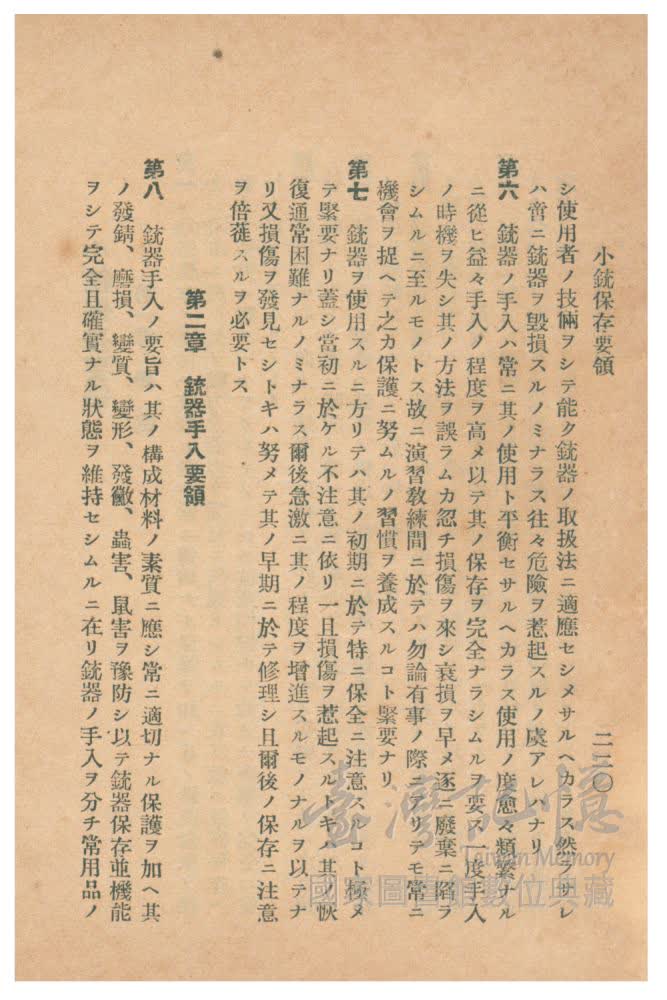 小銃保存要領
二二〇
シ使用者ノ技倆ヲシテ能ク銃器ノ取扱法ニ適應セシメサルヘカラス然ラサレ
ハ啻ニ銃器ヲ毀損スルノミナラス往々危險ヲ惹起スルノ虞アレハナリ
第六 銃器ノ手入ハ常ニ其ノ使用ト平衡セサルヘカラス使用ノ度愈々頻繁ナル
ニ從ヒ益々手入ノ程度ヲ高メ以テ其ノ保存ヲ完全ナラシムルヲ要ス一度手入
ノ時機ヲ失シ其ノ方法ヲ誤ラムカ忽チ損傷ヲ來シ衰損ヲ早メ逐ニ廢棄ニ陷ラ
シムルニ至ルモノトス故ニ演習敎練間ニ於テハ勿論有事ノ際ニアリテモ常ニ
機會ヲ捉ヘテ之カ保護ニ努ムルノ習慣ヲ養成スルコト緊要ナリ
第七 銃器ヲ使用スルニ方リテハ其ノ初期ニ於テ特ニ保全ニ注意スルコト極メ
テ緊要ナリ蓋シ當初ニ於ケル不注意ニ依リ一旦損傷ヲ惹起スルトキハ其ノ恢
復通常困難ナルノミナラス爾後急激ニ其ノ程度ヲ增進スルモノナルヲ以テナ
リ又損傷ヲ發見セシトキハ努メテ其ノ早期ニ於テ修理シ且爾後ノ保存ニ注意
ヲ倍蓰スルヲ必要トス
第二章 銃器手入要領
第八 銃器手入ノ要旨ハ其ノ構成材料ノ素質ニ應シ常ニ適切ナル保護ヲ加ヘ其
ノ發錆、磨損、變質、變形、發黴、蟲害、鼠害ヲ豫防シ以テ銃器保存並機能
ヲシテ完全且確實ナル狀態ヲ維持セシムルニ在リ銃器ノ手入ヲ分チ常用品ノ
臺灣記憶
Taiwan Memory
國家圖書館數位典藏